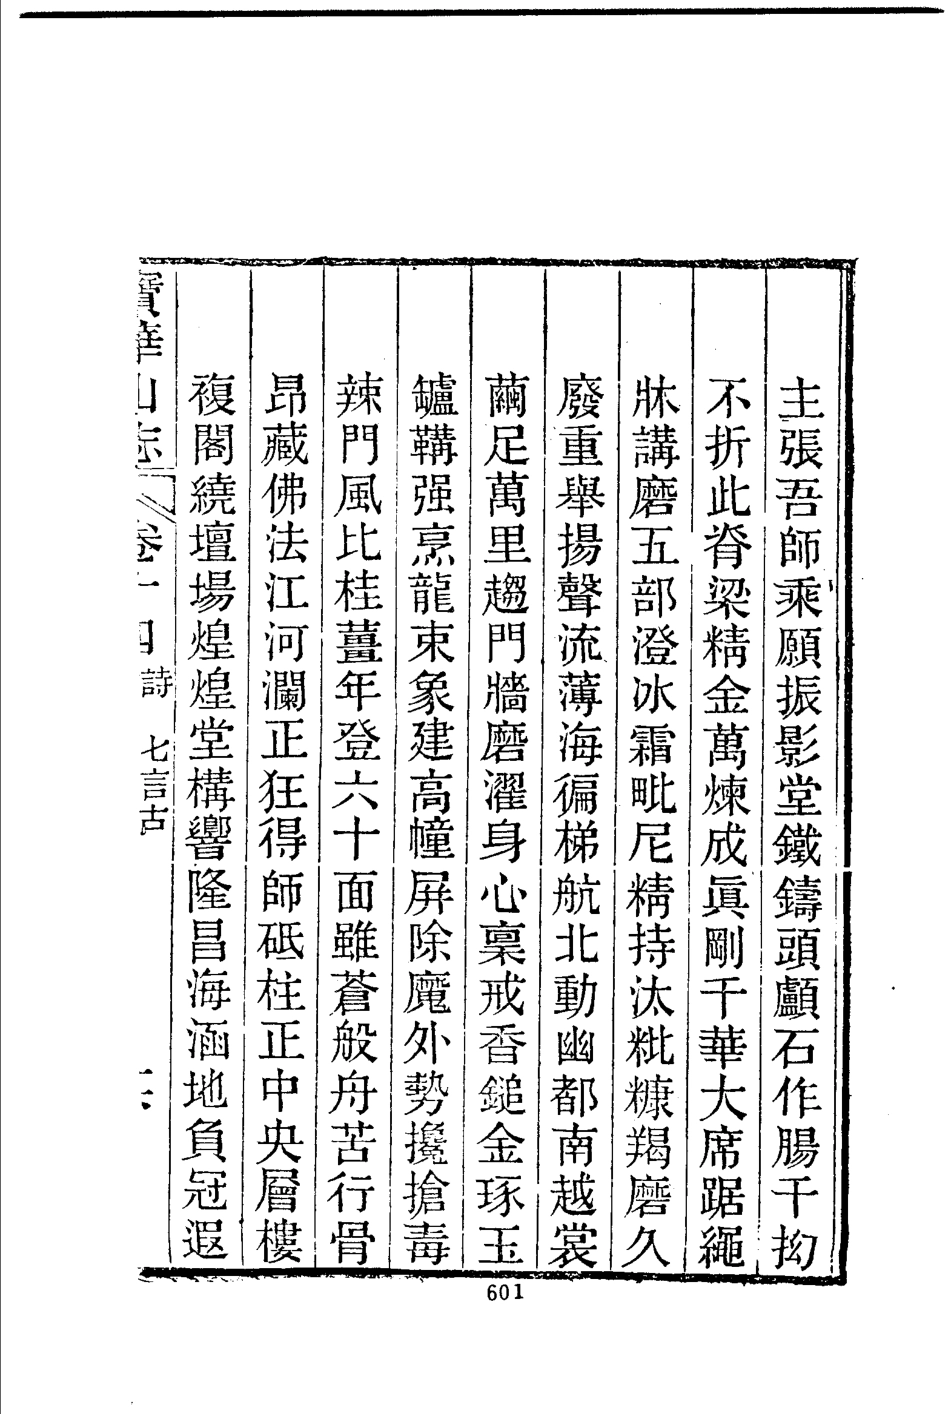 主張吾師乘願振影堂鐵鑄頭顱石作腸千拗
不折此脊梁精金萬煉成眞剛千華大席踞繩
牀講磨五部澄冰霜毗尼精持汰粃糠羯磨久
廢重舉揚聲流薄海徧梯航北動幽都南越裳
繭足萬里趨門牆磨濯身心稟戒香鎚金琢玉
鑪鞲强烹龍束象建高幢屏除魔外勢攙搶毒
辣門風比桂薑年登六十面雖蒼般舟苦行骨
昂藏佛法江河瀾正狂得師砥柱正中央層樓
複閣繞壇場煌煌堂構響隆昌海涵地負冠遐
寶華山志 卷十四 詩 七言古
601